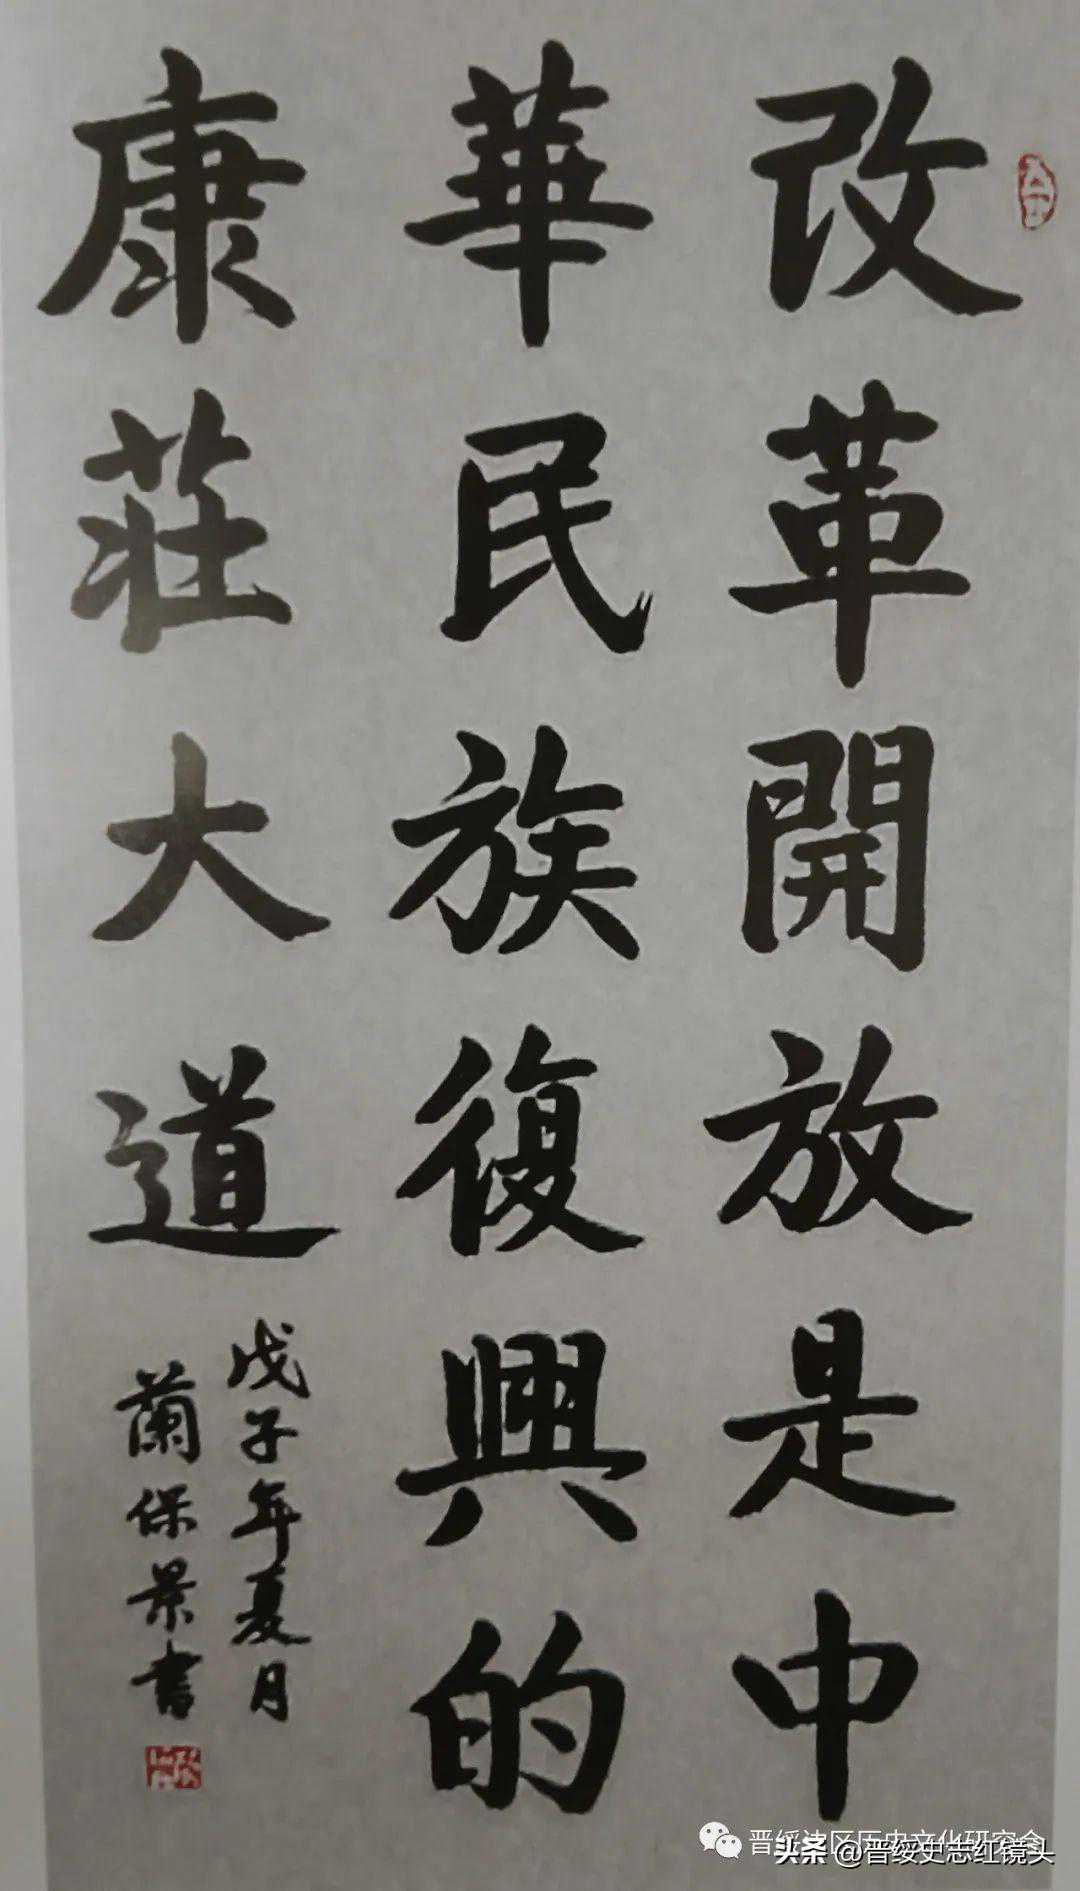 改革開放是中
華民族復興的
康莊大道
戊子年夏月
蘭保景書
晋绥边区历史文化研究会
头条 @晋绥史志红镜头